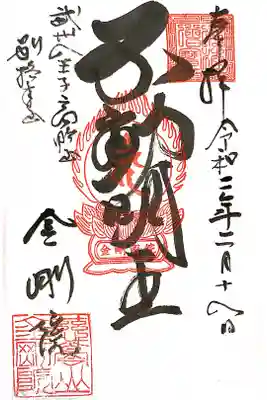 奉拝
令和二年二月十八日
不動明王
八王子高野山
別格本山
金剛院